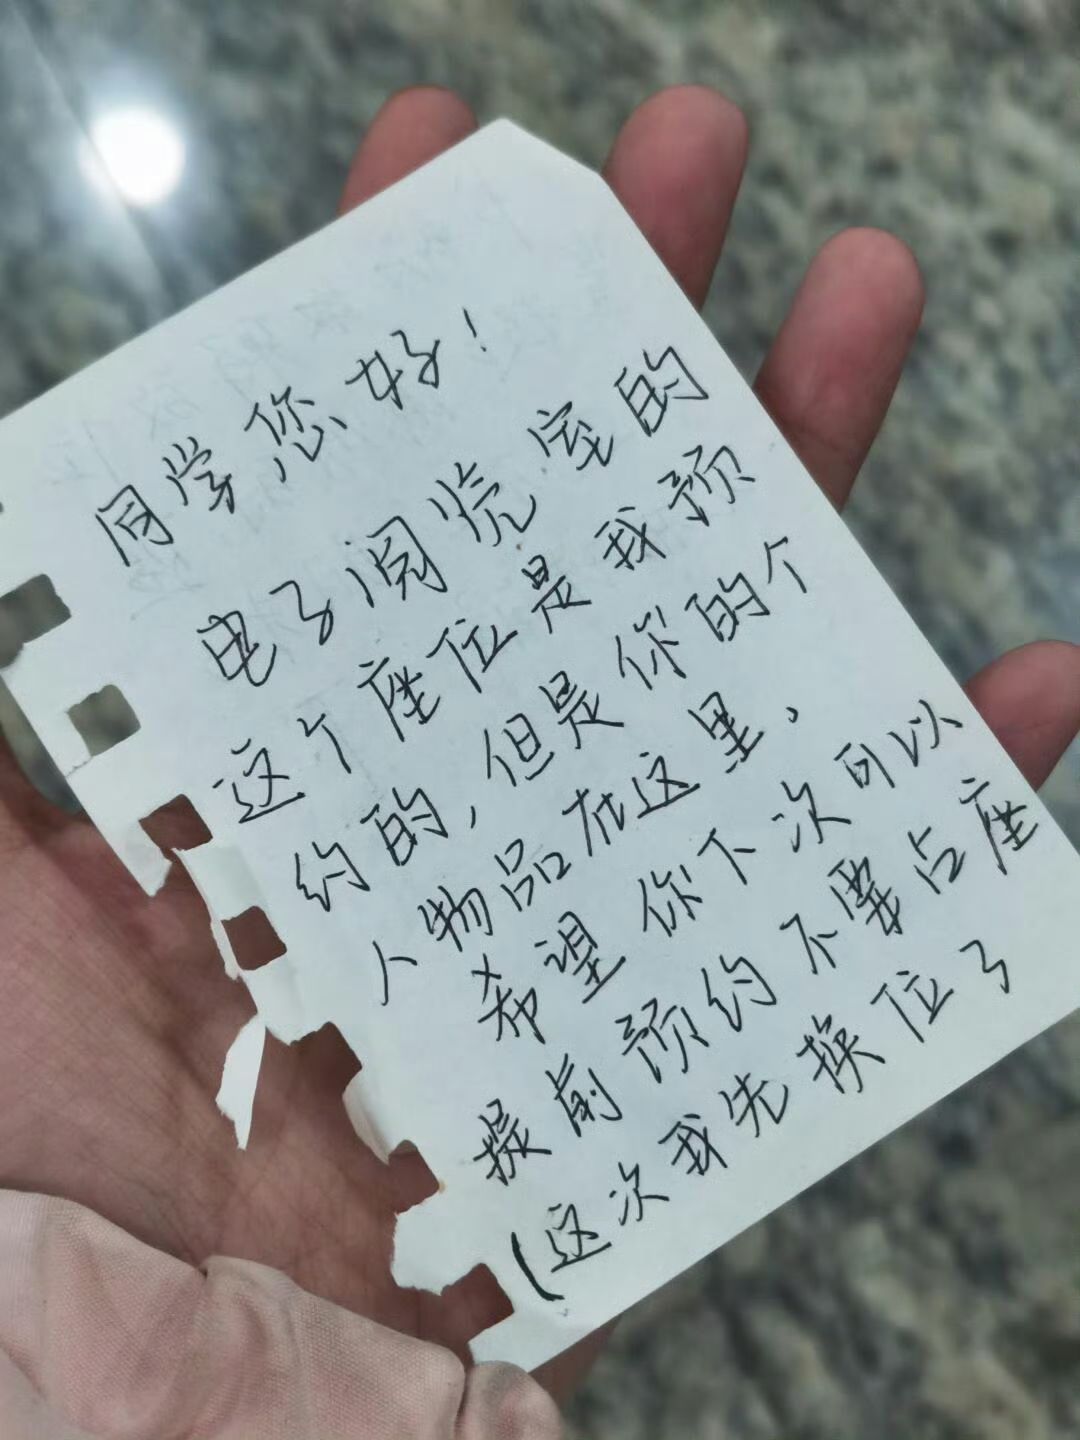 同学您好！
电子阅览室的
这个座位是我预
约的，但是你的个
人物品在这里，
希望你下次可以
提前预约不要占座
（这次我先换位了